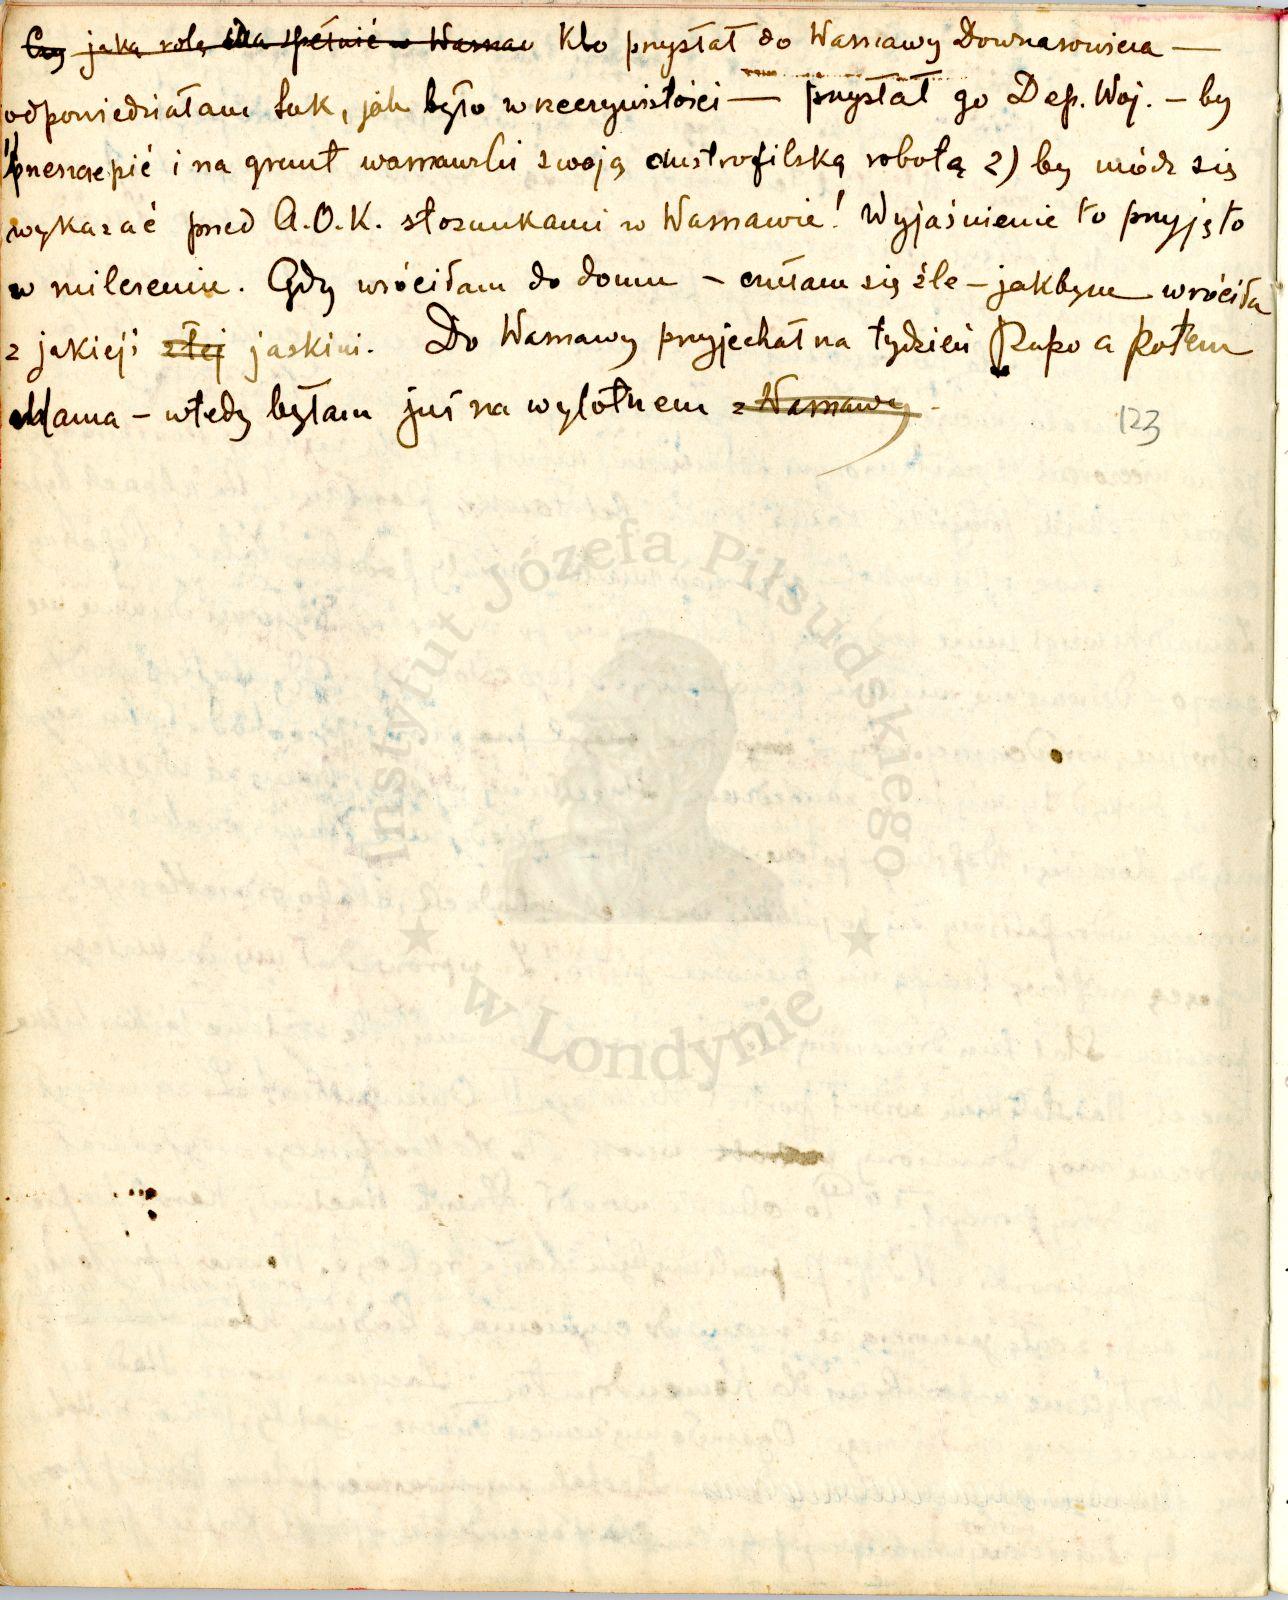 ~~Czy jaką rolę ma spełnić w Warsza~~ Kto przysłał do Warszawy Downarowicza —
odpowiedziałam tak, jak było w rzeczywistości — przysłał go Dep. Woj. – by
1) przeszczepić i na grunt warszawski swoją austrofilską robotą 2) by módz się
wykazać przed A.O.K. stosunkami w Warszawie! Wyjaśnienie to przyjęto
w milczeniu. Gdy wróciłam do domu – czułam się źle – jakbym wróciła
z jakiejś ~~złej~~ jaskini. Do Warszawy przyjechał na tydzień Papo a potem
Mama – wtedy byłam już na wylotnem ~~z Warszawy~~ -
123
Instytut Józefa Piłsudskiego
★ w Londynie ★